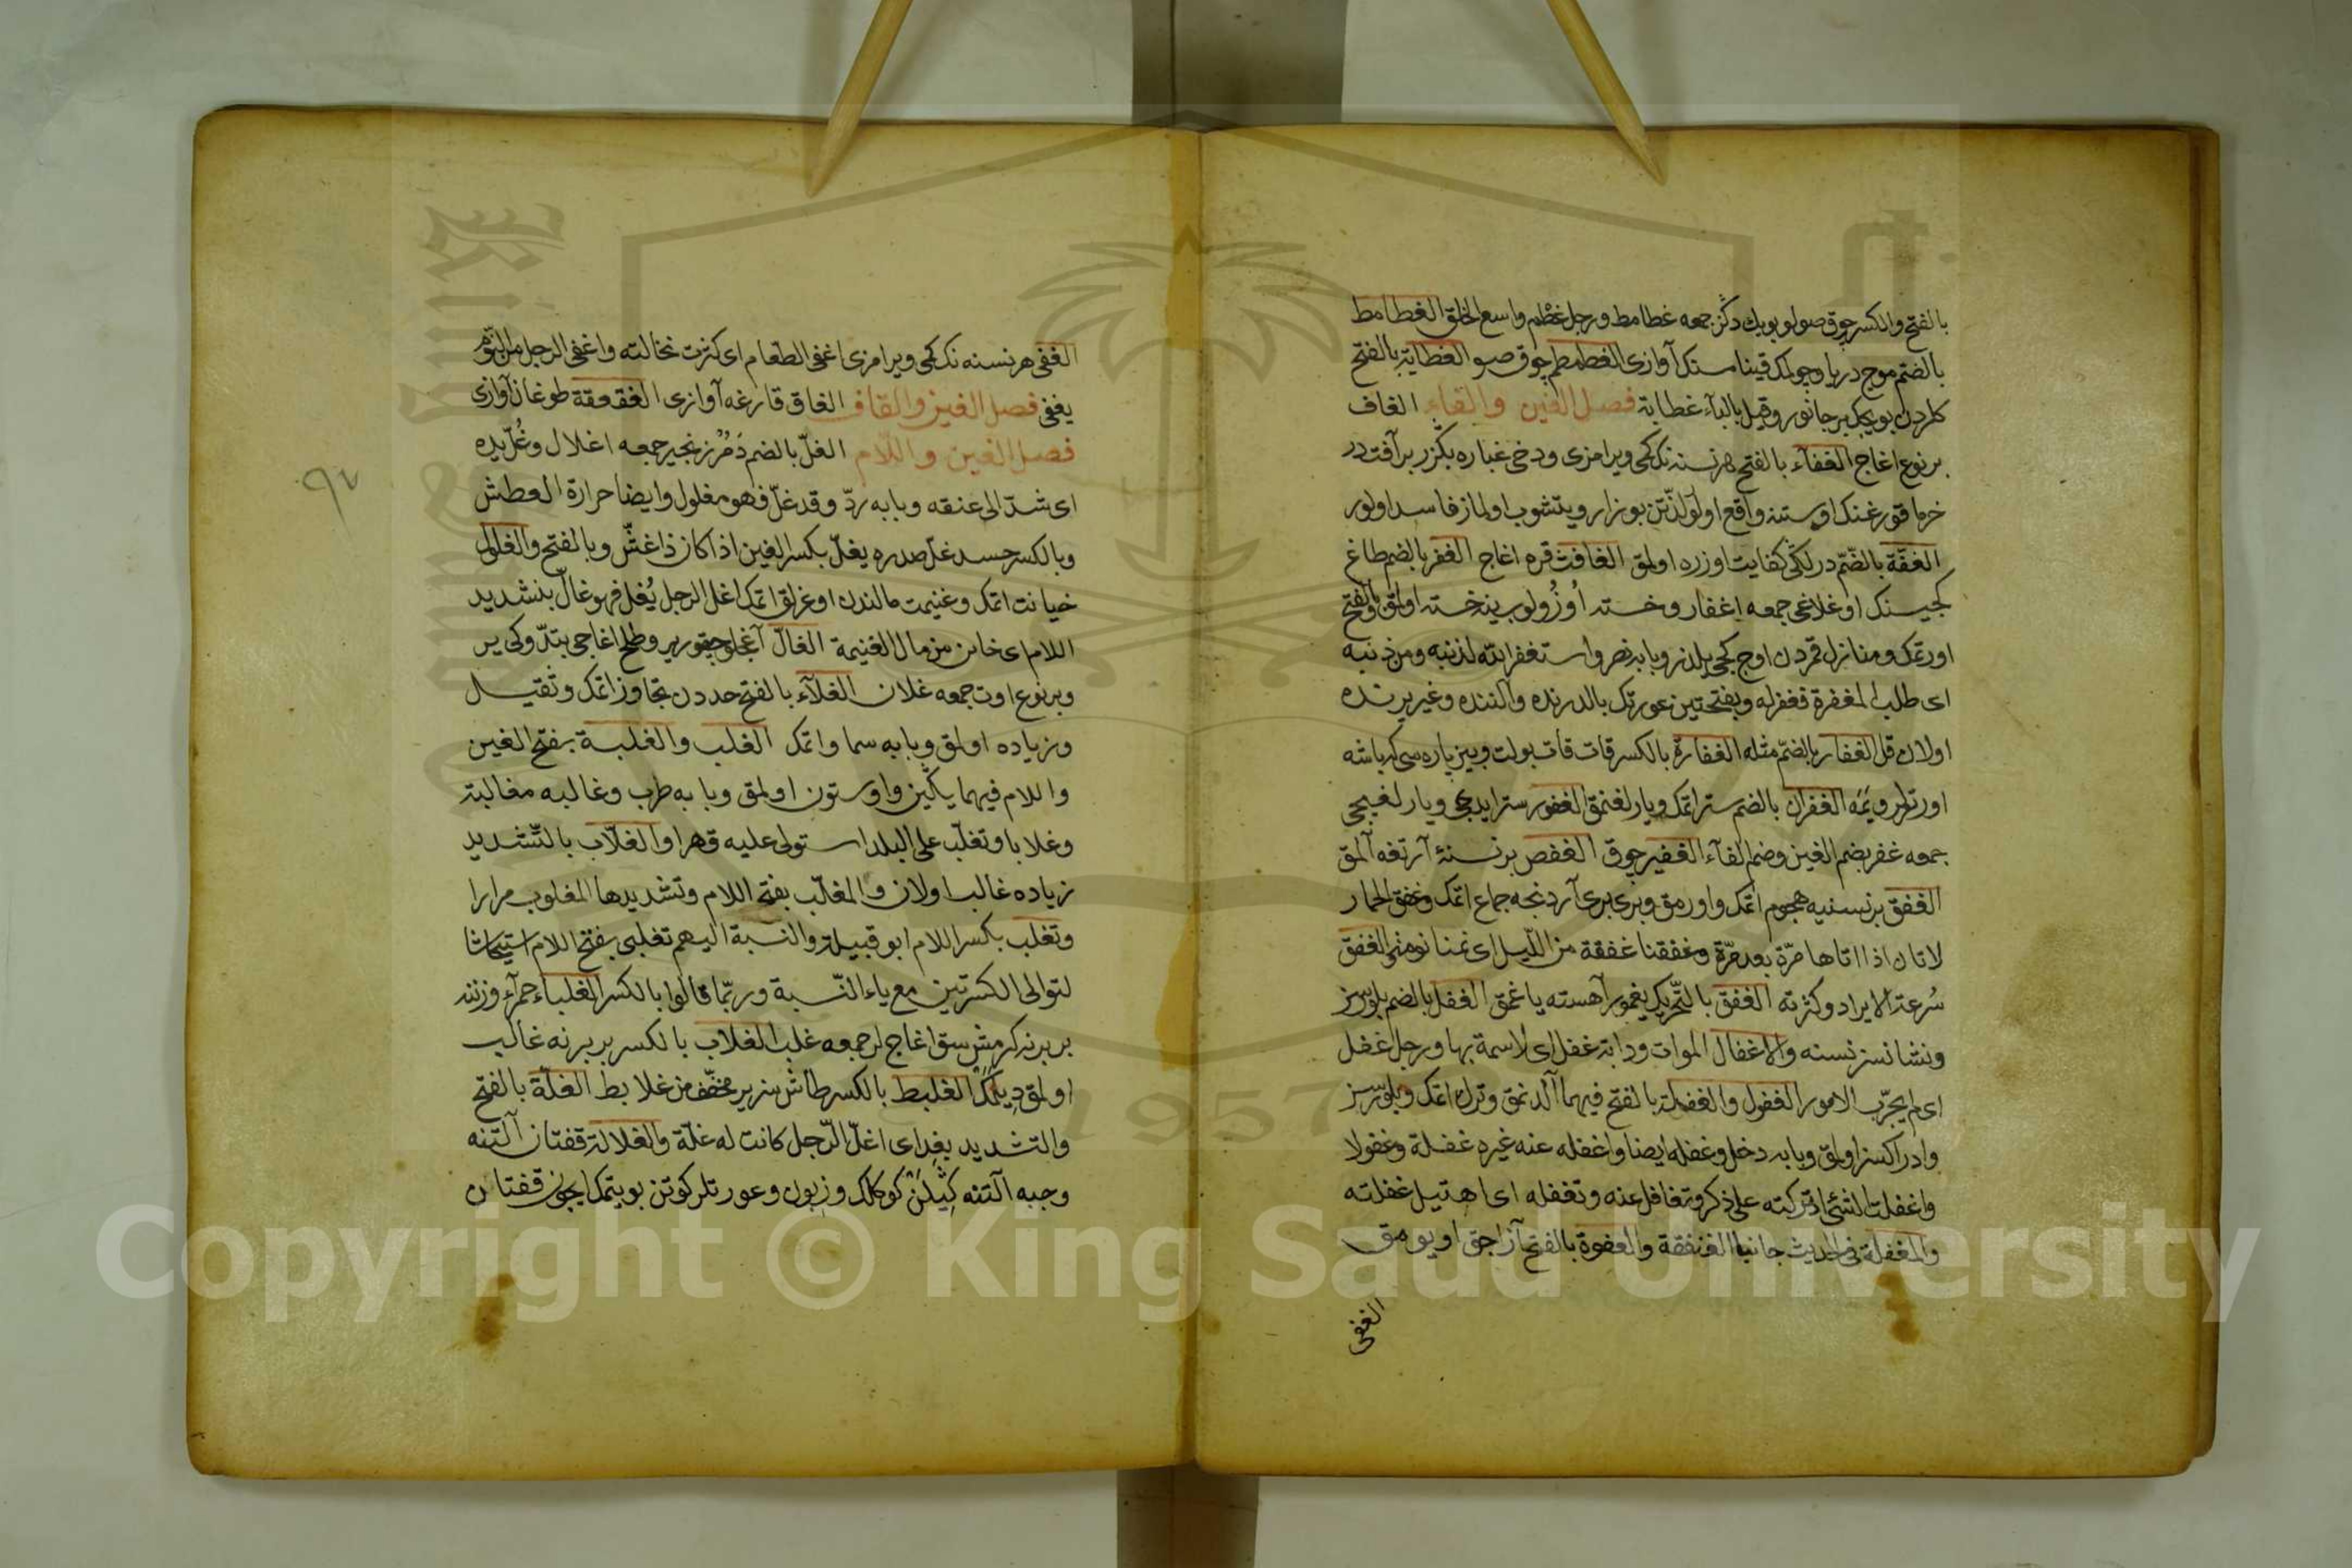 بالفتح والكسر چوق صولو بويك دكز جمعه غطامط ورجل غطم واسع الخلق الغطامط
بالضم موج دريا وچولمك قينامسنك آوازى الغطمطم چوق صو الغطاية بالفتح
كلردن بويجك بر جانور وقيل بالبآء غطابة فصل الغين والفاء الغاف
بر نوع اغاج الغفآء بالفتح هر نسنه نك كمى ويرامزى ودخى غباره بكزر بر آفت در
خرما قورغنك اوستنه واقع اولور
الغفّة بالضّم درلكى كفايت اوزره اولمق الغافث قره اغاج الغفر بالضم طاغ
كجيسنك اوغلاغى جمعه اغفار وخسته اوزولوب ينه خسته اولمق وبالفتح
اورتمك ومنازل قمردن اوج كجى يلدز وبابه ضر واستغفر الله لذنبه ومن ذنبه
اى طلب المغفرة فغفر له وبفتحتين عورتك بالدرنده والننده وغير يرنده
اولان قل الغفار بالضم مثله الغفارة بالكسر قات قات بولت وبيز پاره سى كه باشه
اورترلر الغفران بالضم ستر اتمك ويارلغنمق الغفور ستر ايديجى ويارلغيجى
جمعه غفر بضم الغين وضم الفآء الغفير چوق الغفص بر نسنۀ آرتغه آلمق
الغفق بر نسنيه هجوم اتمك واورمق وبرى برى آردنجه جماع اتمك وغفق الحمار
لاتان اذا اتاها مرّة بعد مرّة وغفقنا غفقة من اللّيل اى نمنا نومة الغفق
سُرعة الايراد وكثرته الغفق بالتّحريك يغمور آهسته ياغمق الغفل بالضم يلوسز
ونشانسز نسنه والاغفال الموات ودابة غفل اى لاسمة بها ورجل غفل
اى لم يجرّب الامور الغفول والغفلة بالفتح فيهما آلدنمق وترك اتمك ويلوسز
وادراكسز اولمق وبابه دخل وغفله ايضا واغفله عنه غيره غفلة وغفولا
واغفلت الشئ اذا تركته على ذكر وتغافل عنه وتغفله اى اهتبل غفلته
والمغفلة فى الحديث جانبا العنفقة والغفوة بالفتح آزاجق اويومق
الغفى
الغفى هر نسنه نك كمى ويرامزى اغفى الطعام اى كثرت نخالته واغفى الرجل من النّوم
يغفى فصل الغين والقاف الغاق قارغه آوازى الغقغقة طوغان آوازى
فصل الغين واللام الغلّ بالضم دمُرْ زنجير جمعه اغلال وغُلّ يده
اى شدّ الى عنقه وبابه ردّ وقد غلّ فهو مغلول وايضا حرارة العطش
وبالكسر حسد غلّ صدره يغلّ بكسر الغين اذا كان ذا غشّ وبالفتح والغلول
خيانت اتمك وغنيمت مالندن اوغرلق اتمك اغل الرجل يُغل فهو غالّ بتشديد
اللام اى خان من مال الغنيمة الغالّ آغاجلو چقور ير وطلح اغاجى بتدوكى ير
وبر نوع اوت جمعه غلان الغلآء بالفتح حددن تجاوز اتمك وثقيل
وزياده اولمق وبابه سما واتمك الغلب والغلبة بفتح الغين
واللام فيهما يكين واوستون اولمق وبابه ضرب وغالبه مغالبة
وغلابا وتغلّب على البلد استولى عليه قهرا والغلّاب بالتّشديد
زياده غالب اولان والمغلّب بفتح اللام وتشديدها المغلوب مرارا
وتغلب بكسر اللام ابو قبيلة والنسبة اليهم تغلبى بفتح اللام استيحاشا
لتوالى الكسرتين مع ياء النّسبة وربّما قالوا بالكسر الغلباء حمرآء وزننه
بر برنه كرمش سق اغاجلر جمعه غلب الغلاب بالكسر بر برنه غالب
اولمق ديلمك الغلبط بالكسر طاشسز ير مخفّف من غلابط الغلّة بالفتح
والتشديد بغداى اغلّ الرّجل كانت له غلّة والغلالة قفتان آلتنه
وجبه آلتنه كيلن كوكلك وزبون وعورتلر كوتن بويتمك ايچون قفتان
٩٧
Copyright © King Saud University
1957